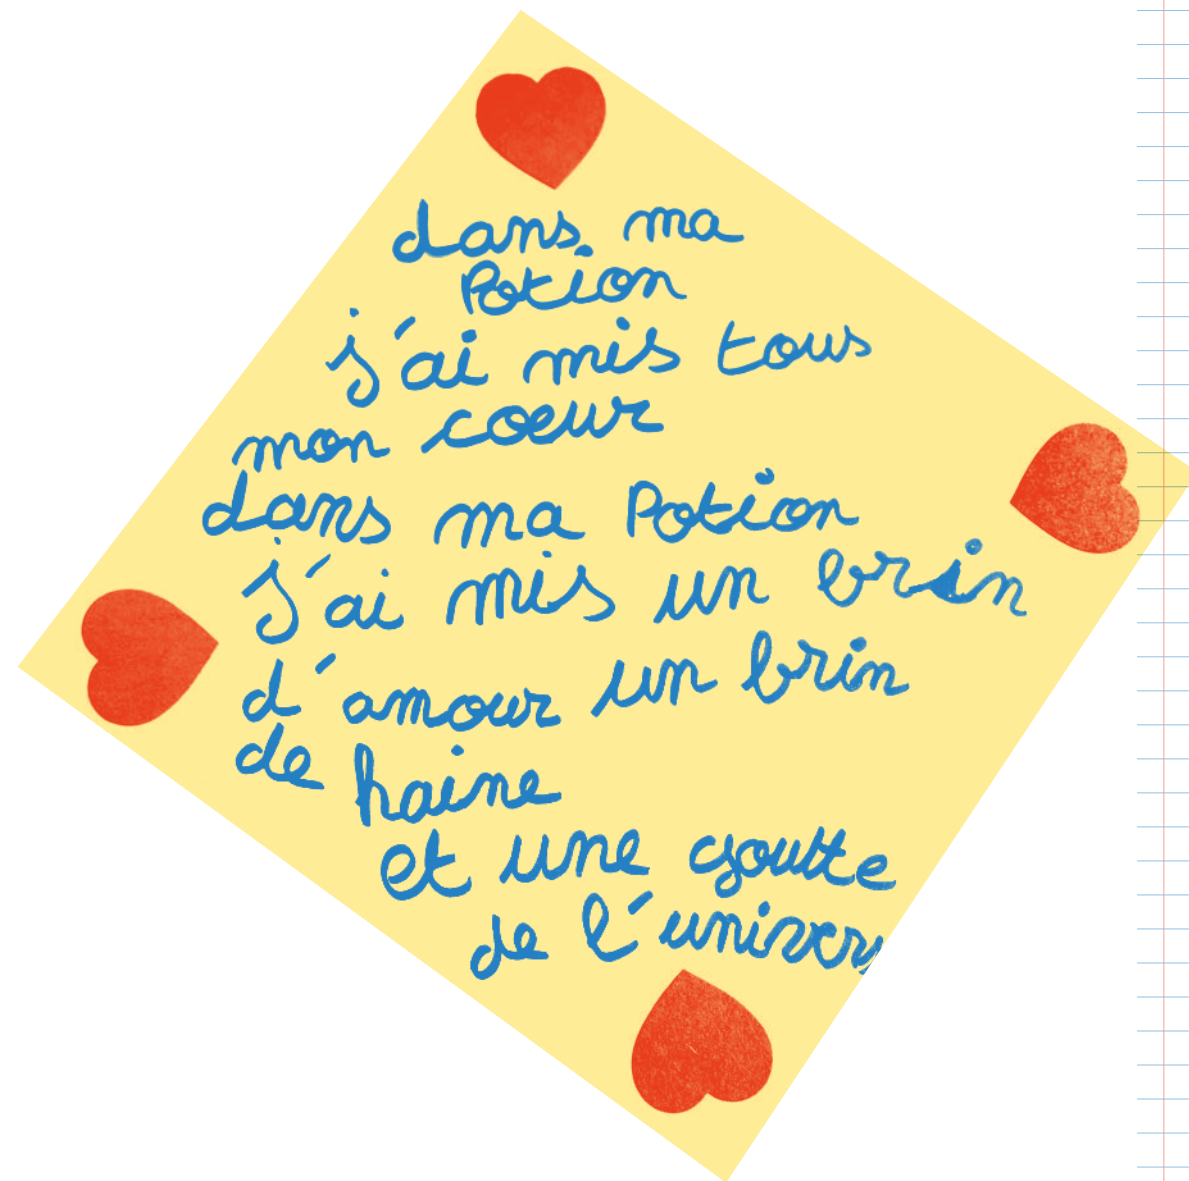 dans ma
Potion
j'ai mis tous
mon coeur
dans ma Potion
j'ai mis un brin
d'amour un brin
de haine
et une goutte
de l'univers